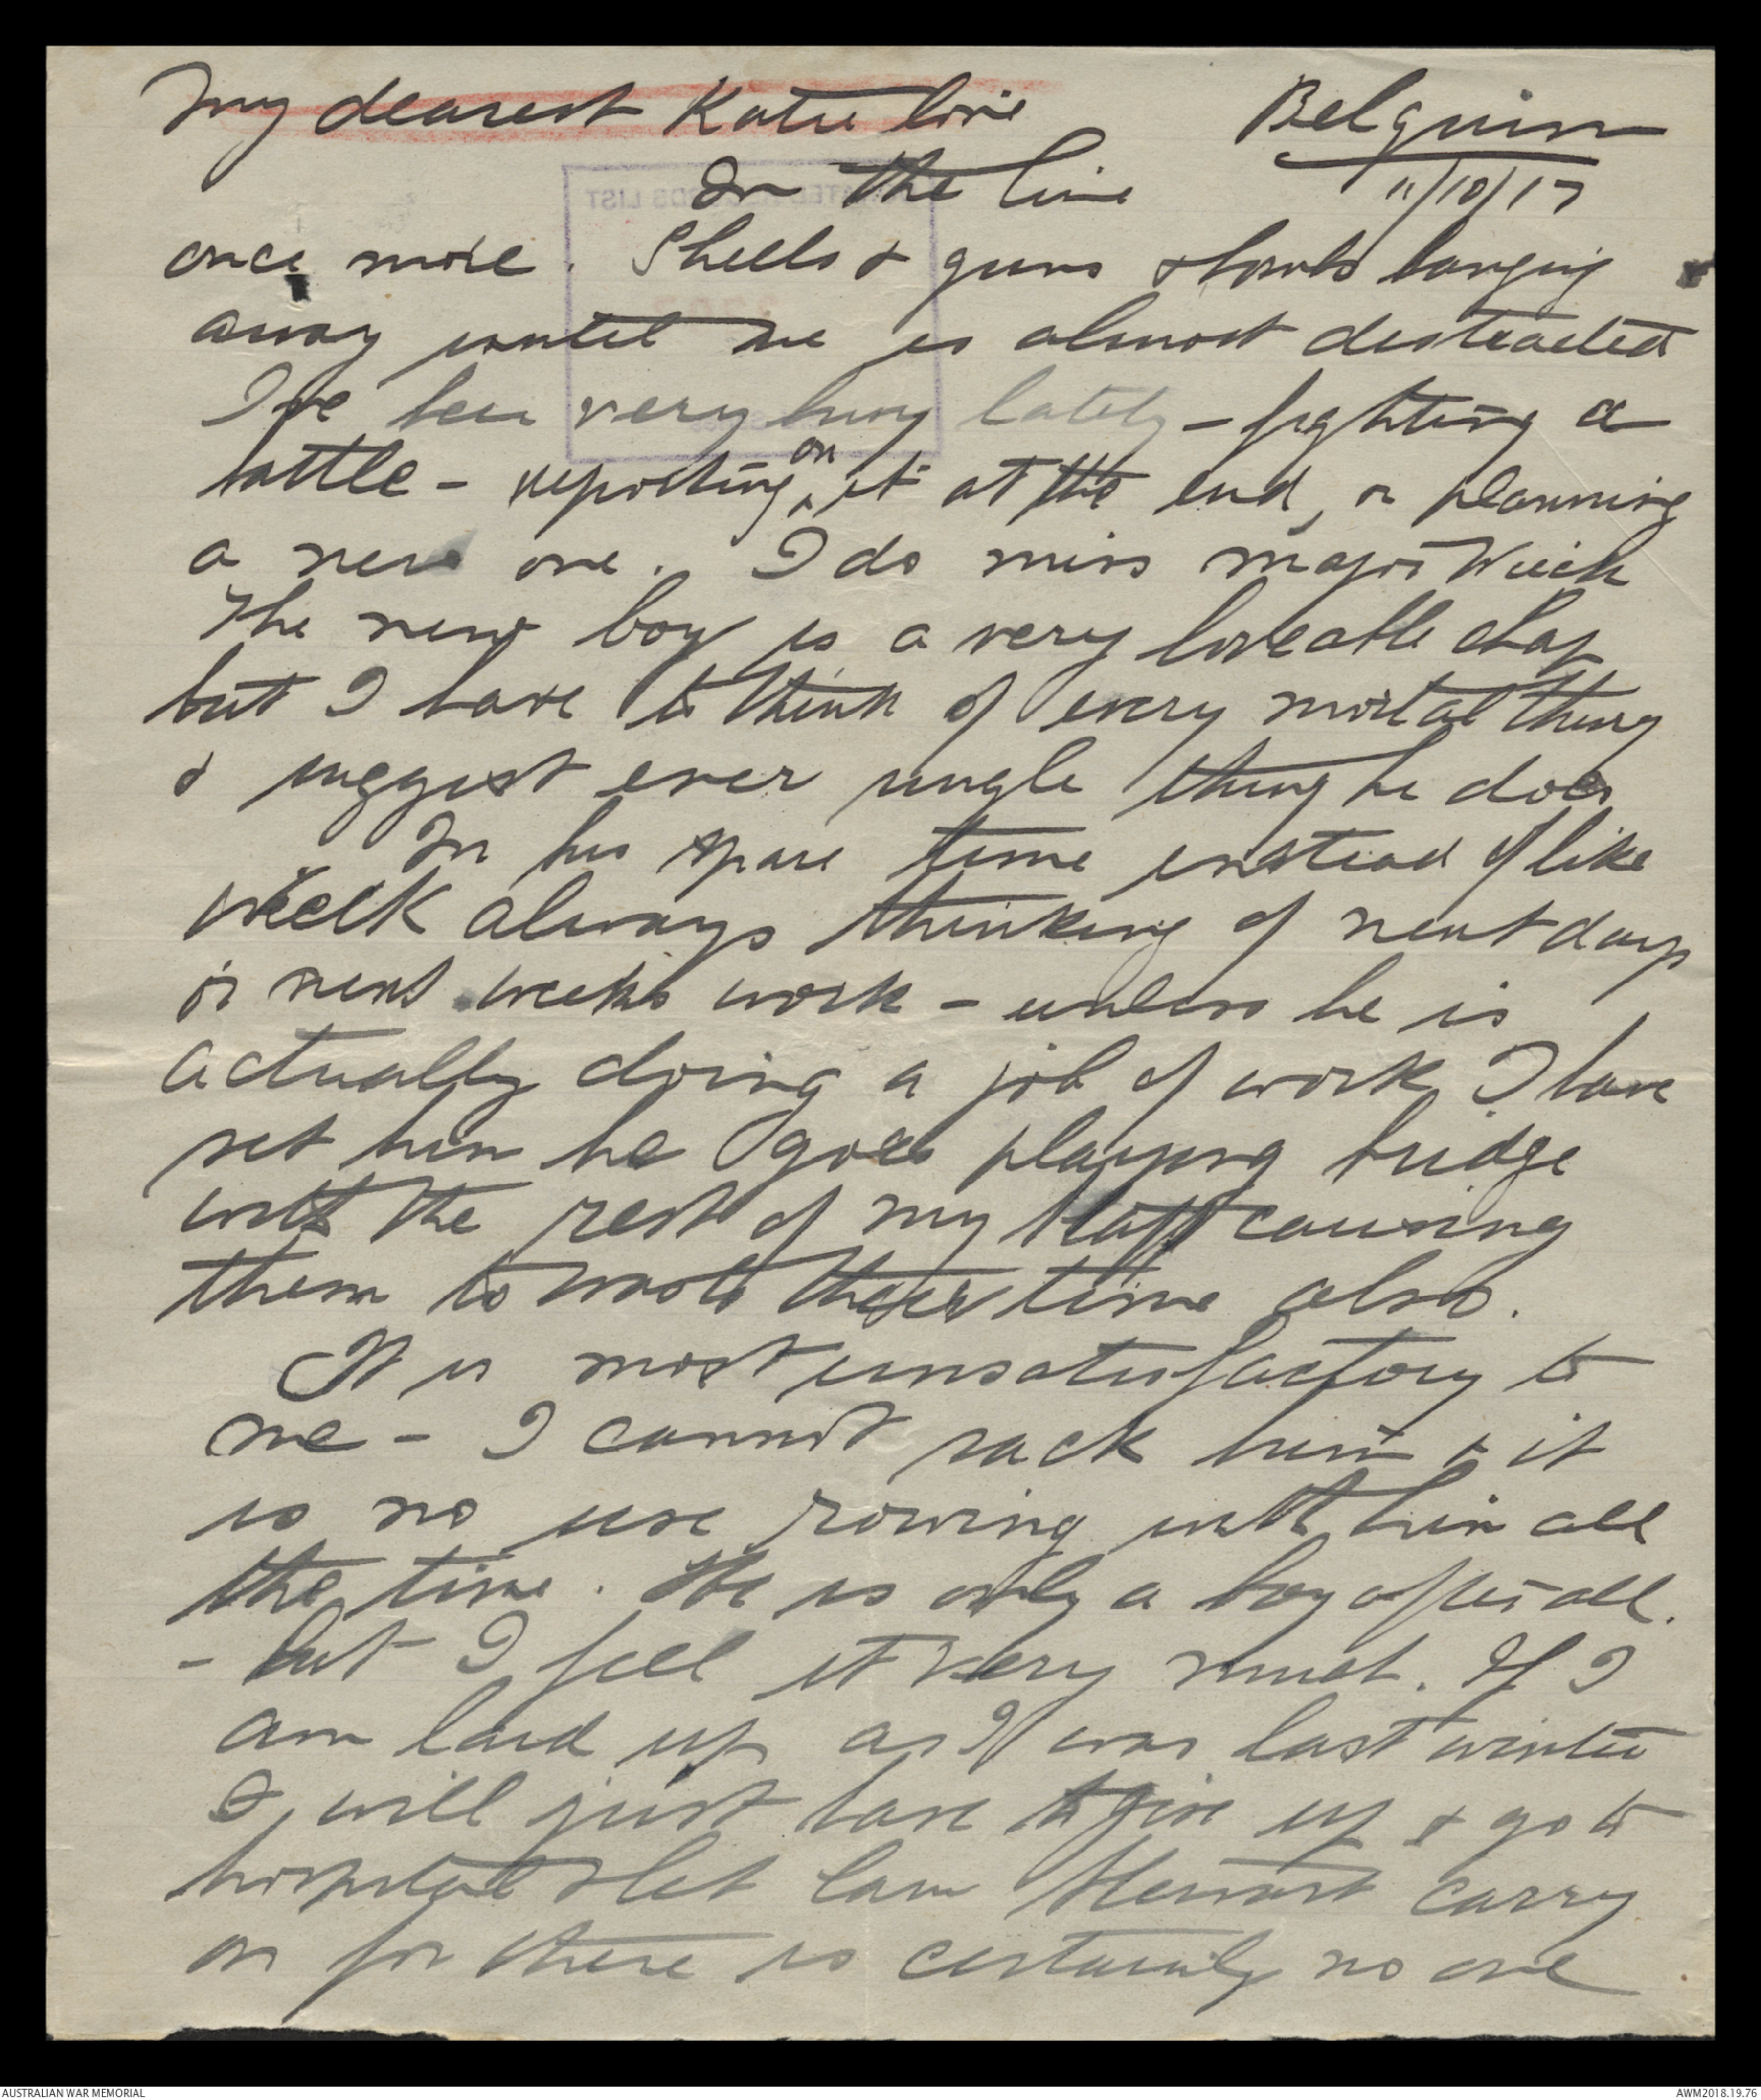 My dearest Katie love
Belguim
11/10/17
In the line
once more. Shells & guns & bombs banging
away until one is almost distracted
I've been very busy lately - fighting a
battle - reporting on it at the end, or planning
a new one. I do miss Major Wieck
The new boy is a very loveable chap
but I have to think of every mortal thing
& suggest ever single thing he does
In his spare time instead of like
Wieck always thinking of next days
or next weeks work - unless he is
actually doing a job of work I have
set him he goes playing bridge
with the rest of my staff causing
them to waste their time also.
It is most unsatisfactory to
me - I cannot sack him & it
is no use rowing with him all
the time. He is only a boy after all.
- but I feel it very much. If I
am laid up as I was last winter
I will just have to give up & go to
hospital & let Cam Stewart carry
on for there is certainly no one
AUSTRALIAN WAR MEMORIAL
AWM2018.19.76